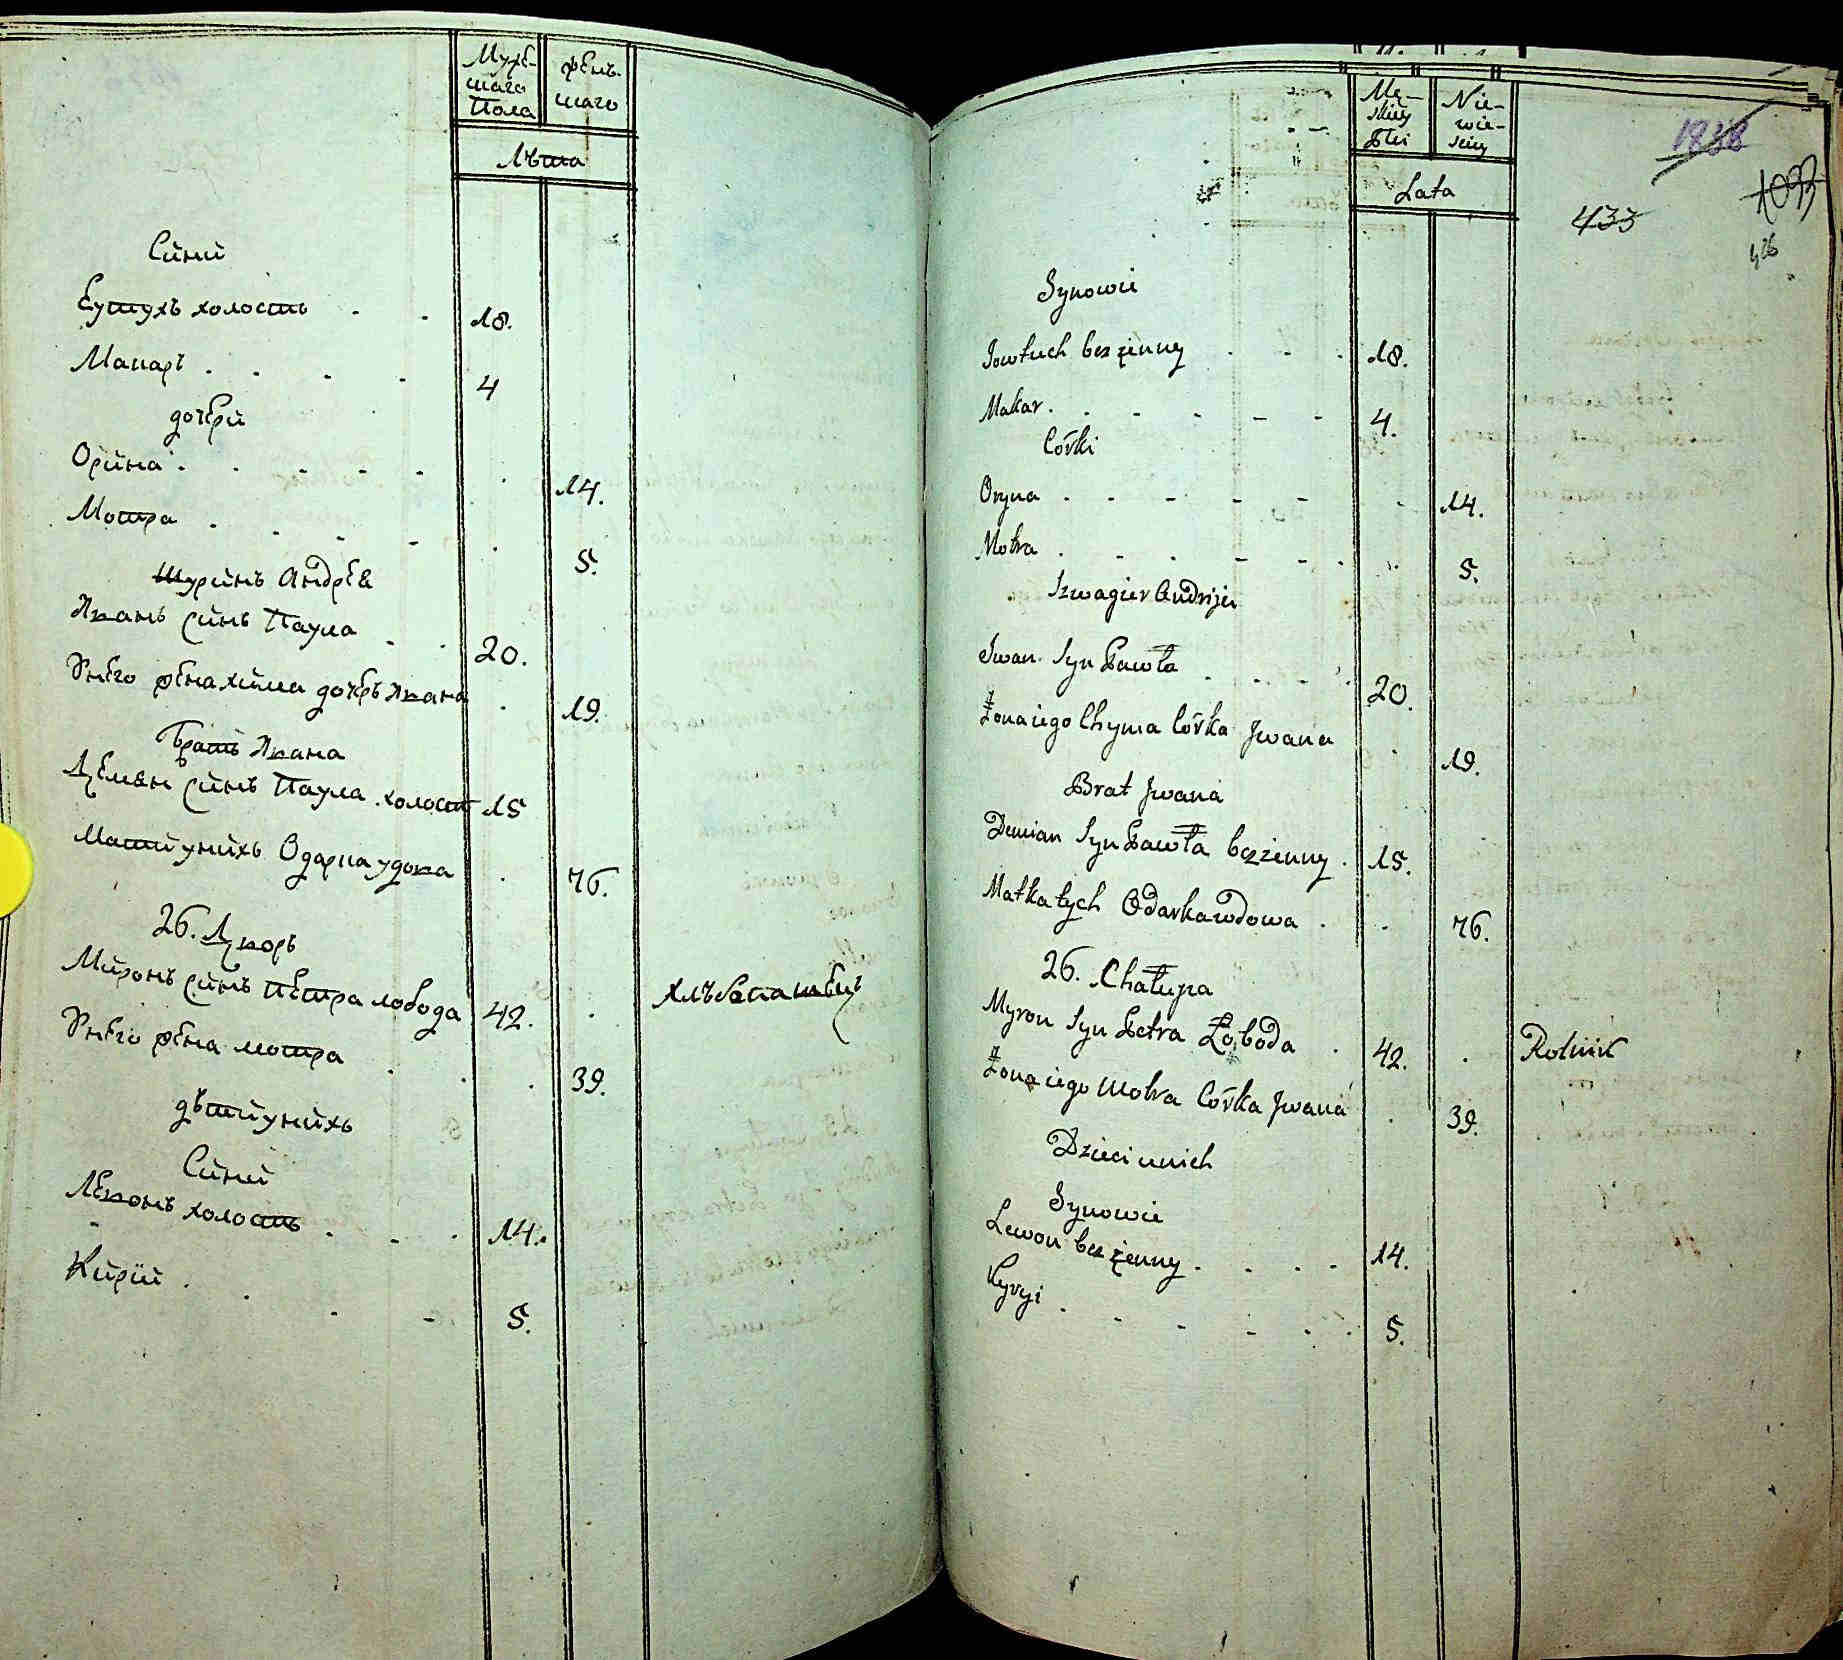 Муже-
скаго
Пола
жень-
скаго
Лѣта
Сини
Еутухъ холостъ . . 18.
Макаръ . . . . 4
дочери
Орина . . . . . 14.
Мотра . . . . . 5.
Шуринъ Андрея
Иванъ синъ Паула . . 20.
У него жена Хима дочеръ Ивана . 19.
Братъ Ивана
Демян синъ Паула . холост 15
Мати у нихъ Одарка удова . 76.
26. Дворъ
Миронъ синъ Петра лобода 42. . хлѣбопашецъ
У него жена мотра . . . 39.
дѣти у нихъ
Сини
Левонъ холостъ . . . 14.
Кирій . . . . 5.
Mę-
skiey
Płci
Nie-
wie-
sciey
Lata
1838
1093
433
426
Synowie
Jowtuch bezżenny . . . 18.
Makar . . . . . 4.
Córki
Oryna . . . . . . 14.
Motra . . . . . . 5.
Szwagier Andrija
Iwan Syn Pawła . . . . 20.
Żona iego Chyma Córka Jwana . 19.
Brat Jwana
Demian Syn Pawła bezżenny . 15.
Matka tych Odarka wdowa . . 76.
26. Chałupa
Myron Syn Petra Łoboda . 42. . Rolnik
Żona iego Motra Córka Jwana . 39.
Dzieci unich
Synowie
Lewon bezżenny . . . . 14.
Kyryi . . . . . . 5.